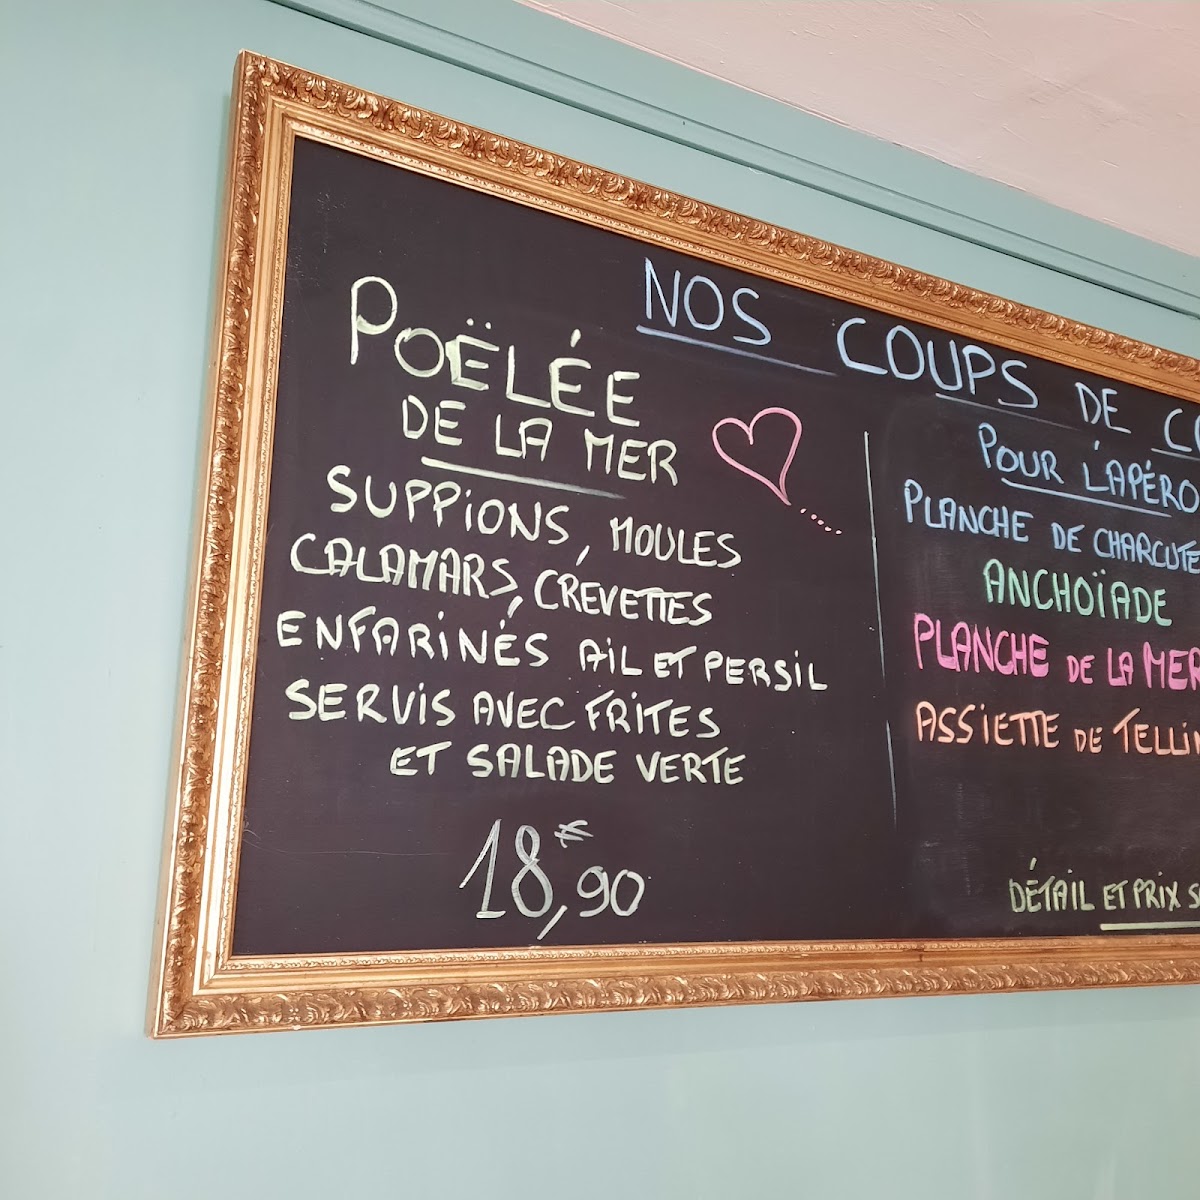 NOS COUPS DE
POËLÉE
DE LA MER
SUPPIONS, MOULES
CALAMARS, CREVETTES
ENFARINÉS AIL ET PERSIL
SERVIS AVEC FRITES
ET SALADE VERTE
18€,90
POUR L'APÉRO
PLANCHE DE
ANCHOÏADE
PLANCHE DE LA MER
ASSIETTE DE
DÉTAIL ET PRIX